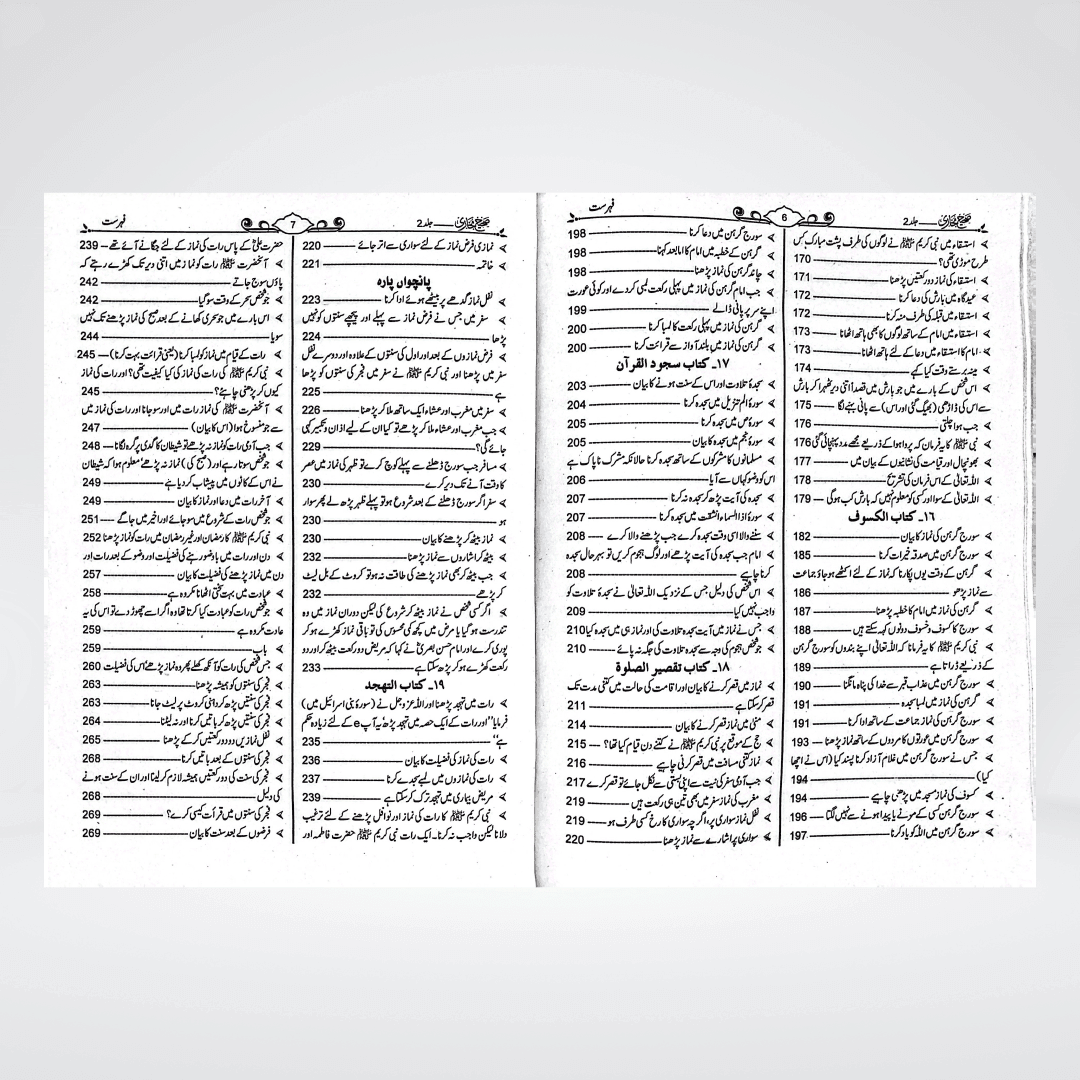 صحیح بخاری ـــ جلد 2
6
فہرست
استسقاء میں نبی کریم ﷺ نے لوگوں کی طرف پشت مبارک کس
طرح موڑی تھی؟ 170
استسقاء کی نماز دو رکعتیں پڑھنا 171
عیدگاہ میں بارش کی دعا کرنا 172
استسقاء میں قبلہ کی طرف منہ کرنا 172
استسقاء میں امام کے ساتھ لوگوں کا بھی ہاتھ اٹھانا 173
امام کا استسقاء میں دعا کے لئے ہاتھ اٹھانا 173
مینہ برستے وقت کیا کہے 174
اس شخص کے بارے میں جو بارش میں قصداً اتنی دیر ٹھہرا کر بارش
سے اس کی ڈاڑھی (بھیگ گئی اور اس) سے پانی بہنے لگا 175
جب ہوا چلتی 176
نبی ﷺ کا یہ فرمان کہ پروا ہوا کے ذریعے مجھے مدد پہنچائی گئی 176
بھونچال اور قیامت کی نشانیوں کے بیان میں 177
اللہ تعالیٰ کے اس فرمان کی تشریح 178
اللہ تعالیٰ کے سوا اور کسی کو معلوم نہیں کہ بارش کب ہوگی 179
۱۶ـ کتاب الکسوف
سورج گرہن کی نماز کا بیان 182
سورج گرہن میں صدقہ خیرات کرنا 185
گرہن کے وقت یوں پکارنا کہ نماز کے لئے اکٹھے ہو جاؤ جماعت
سے نماز پڑھو 186
گرہن کی نماز میں امام کا خطبہ پڑھنا 187
سورج کا کسوف و خسوف دونوں کہہ سکتے ہیں 188
نبی کریم ﷺ کا یہ فرمانا کہ اللہ تعالیٰ اپنے بندوں کو سورج گرہن
کے ذریعے ڈراتا ہے 189
سورج گرہن میں عذاب قبر سے خدا کی پناہ مانگنا 190
سورج گرہن کی نماز میں لمبا سجدہ کرنا 191
سورج گرہن کی نماز جماعت کے ساتھ ادا کرنا 191
سورج گرہن میں عورتوں کا مردوں کے ساتھ نماز پڑھنا 193
جس نے سورج گرہن میں غلام آزاد کرنا پسند کیا (اس نے اچھا
کیا) 194
کسوف کی نماز مسجد میں پڑھنی چاہیے 194
سورج گرہن کسی کے مرنے یا پیدا ہونے سے نہیں لگتا 196
سورج گرہن میں اللہ کو یاد کرنا 197
سورج گرہن میں دعا کرنا 198
گرہن کے خطبہ میں امام کا اما بعد کہنا 198
چاند گرہن کی نماز پڑھنا 198
جب امام گرہن کی نماز میں پہلی رکعت لمبی کر دے اور کوئی عورت
اپنے سر پر پانی ڈالے 199
گرہن کی نماز میں پہلی رکعت کا لمبا کرنا 200
گرہن کی نماز میں بلند آواز سے قرائت کرنا 200
۱۷ـ کتاب سجود القرآن
سجدۂ تلاوت اور اس کے سنت ہونے کا بیان 203
سورۂ الم تنزیل میں سجدہ کرنا 204
سورۂ ص میں سجدہ کرنا 205
سورۂ نجم میں سجدہ کا بیان 205
مسلمانوں کا مشرکوں کے ساتھ سجدہ کرنا حالانکہ مشرک ناپاک ہے
اس کو وضو کہاں سے آیا 206
سجدہ کی آیت پڑھ کر سجدہ نہ کرنا 207
سورۂ اذا السماء انشقت میں سجدہ کرنا 207
سننے والا اسی وقت سجدہ کرے جب پڑھنے والا کرے 208
امام جب سجدہ کی آیت پڑھے اور لوگ ہجوم کریں تو بہرحال سجدہ
کرنا چاہیے 208
اس شخص کی دلیل جس کے نزدیک اللہ تعالیٰ نے سجدۂ تلاوت کو
واجب نہیں کیا 209
جس نے نماز میں آیت سجدہ تلاوت کی اور نماز ہی میں سجدہ کیا 210
جو شخص ہجوم کی وجہ سے سجدہ تلاوت کی جگہ نہ پائے 210
۱۸ـ کتاب تقصیر الصلوۃ
نماز میں قصر کرنے کا بیان اور اقامت کی حالت میں کتنی مدت تک
قصر کر سکتا ہے 211
منیٰ میں نماز قصر کرنے کا بیان 214
حج کے موقع پر نبی کریم ﷺ نے کتنے دن قیام کیا تھا؟ 215
نماز کتنی مسافت میں قصر کرنی چاہیے 216
جب آدمی سفر کی نیت سے اپنی بستی سے نکل جائے تو قصر کرے 217
مغرب کی نماز سفر میں بھی تین ہی رکعت ہیں 219
نفل نماز سواری پر، اگرچہ سواری کا رخ کسی طرف ہو 219
سواری پر اشارے سے نماز پڑھنا 220
صحیح بخاری ـــ جلد 2
7
فہرست
نمازی فرض نماز کے لئے سواری سے اتر جائے 220
خاتمہ 221
پانچواں پارہ
نفل نماز گدھے پر بیٹھے ہوئے ادا کرنا 223
سفر میں جس نے فرض نماز سے پہلے اور پیچھے سنتوں کو نہیں
پڑھا 224
فرض نمازوں کے بعد اور اول کی سنتوں کے علاوہ اور دوسرے نفل
سفر میں پڑھنا اور نبی کریم ﷺ نے سفر میں فجر کی سنتوں کو پڑھا
ہے 225
سفر میں مغرب اور عشاء ایک ساتھ ملا کر پڑھنا 226
جب مغرب اور عشاء ملا کر پڑھے تو کیا ان کے لیے اذان و تکبیر کہی
جائے گی؟ 229
مسافر جب سورج ڈھلنے سے پہلے کوچ کرے تو ظہر کی نماز میں عصر
کا وقت آنے تک دیر کرے 230
سفر اگر سورج ڈھلنے کے بعد شروع ہو تو پہلے ظہر پڑھ لے پھر سوار
ہو 230
نماز بیٹھ کر پڑھنے کا بیان 230
بیٹھ کر اشاروں سے نماز پڑھنا 232
جب بیٹھ کر بھی نماز پڑھنے کی طاقت نہ ہو تو کروٹ کے بل لیٹ
کر پڑھے 232
اگر کسی شخص نے نماز بیٹھ کر شروع کی لیکن دوران نماز میں وہ
تندرست ہو گیا یا مرض میں کچھ کمی محسوس کی تو باقی نماز کھڑے ہو کر
پوری کرے اور امام حسن بصریؒ نے کہا کہ مریض دو رکعت بیٹھ کر اور دو
رکعت کھڑے ہو کر پڑھ سکتا ہے 233
۱۹ـ کتاب التهجد
رات میں تہجد پڑھنا اور اللہ عزوجل نے (سورۂ بنی اسرائیل میں)
فرمایا ''اور رات کے ایک حصہ میں تہجد پڑھ یہ آپ e کے لئے زیادہ حکم
ہے'' 235
رات کی نماز کی فضیلت کا بیان 236
رات کی نمازوں میں لمبے سجدے کرنا 237
مریض بیماری میں تہجد ترک کر سکتا ہے 239
نبی کریم ﷺ کا رات کی نماز اور نوافل پڑھنے کے لئے ترغیب
دلانا لیکن واجب نہ کرنا۔ ایک رات نبی کریم ﷺ حضرت فاطمہ اور
حضرت علیؓ کے پاس رات کی نماز کے لئے جگانے آئے تھے 239
آنحضرت ﷺ رات کو نماز میں اتنی دیر تک کھڑے رہتے کہ
پاؤں سوج جاتے 242
جو شخص سحر کے وقت سو گیا 242
اس بارے میں جو سحری کھانے کے بعد صبح کی نماز پڑھنے تک نہیں
سویا 244
رات کے قیام میں نماز کو لمبا کرنا (یعنی قرائت بہت کرنا) 245
نبی کریم ﷺ کی رات کی نماز کی کیا کیفیت تھی؟ اور رات کی نماز
کیوں کر پڑھنی چاہیے؟ 245
آنحضرت ﷺ کی نماز رات میں اور سو جانا اور رات کی نماز میں
سے جو منسوخ ہوا (اس کا بیان) 247
جب آدمی رات کو نماز نہ پڑھے تو شیطان کا گدی پر گرہ لگانا 248
جو شخص سوتا رہے اور (صبح کی) نماز نہ پڑھے معلوم ہوا کہ شیطان
نے اس کے کانوں میں پیشاب کر دیا ہے 249
آخر رات میں دعا اور نماز کا بیان 249
جو شخص رات کے شروع میں سو جائے اور اخیر میں جاگے 251
نبی کریم ﷺ کا رمضان اور غیر رمضان میں رات کو نماز پڑھنا 252
دن اور رات میں باوضو رہنے کی فضیلت اور وضو کے بعد رات اور
دن میں نماز پڑھنے کی فضیلت کا بیان 257
عبادت میں بہت سختی اٹھانا مکروہ ہے 258
جو شخص رات کو عبادت کیا کرتا تھا وہ اگر اسے چھوڑ دے تو اس کی یہ
عادت مکروہ ہے 259
باب 259
جس شخص کی رات کو آنکھ کھلے پھر وہ نماز پڑھے اس کی فضیلت 260
فجر کی سنتوں کو ہمیشہ پڑھنا 263
فجر کی سنتیں پڑھ کر داہنی کروٹ پر لیٹ جانا 263
فجر کی سنتیں پڑھ کر باتیں کرنا اور نہ لیٹنا 264
نفل نمازیں دو دو رکعتیں کر کے پڑھنا 265
فجر کی سنتوں کے بعد باتیں کرنا 268
فجر کی سنت کی دو رکعتیں ہمیشہ لازم کر لینا اور ان کے سنت ہونے
کی دلیل 268
فجر کی سنتوں میں قرأت کیسی کرے؟ 269
فرضوں کے بعد سنت کا بیان 269